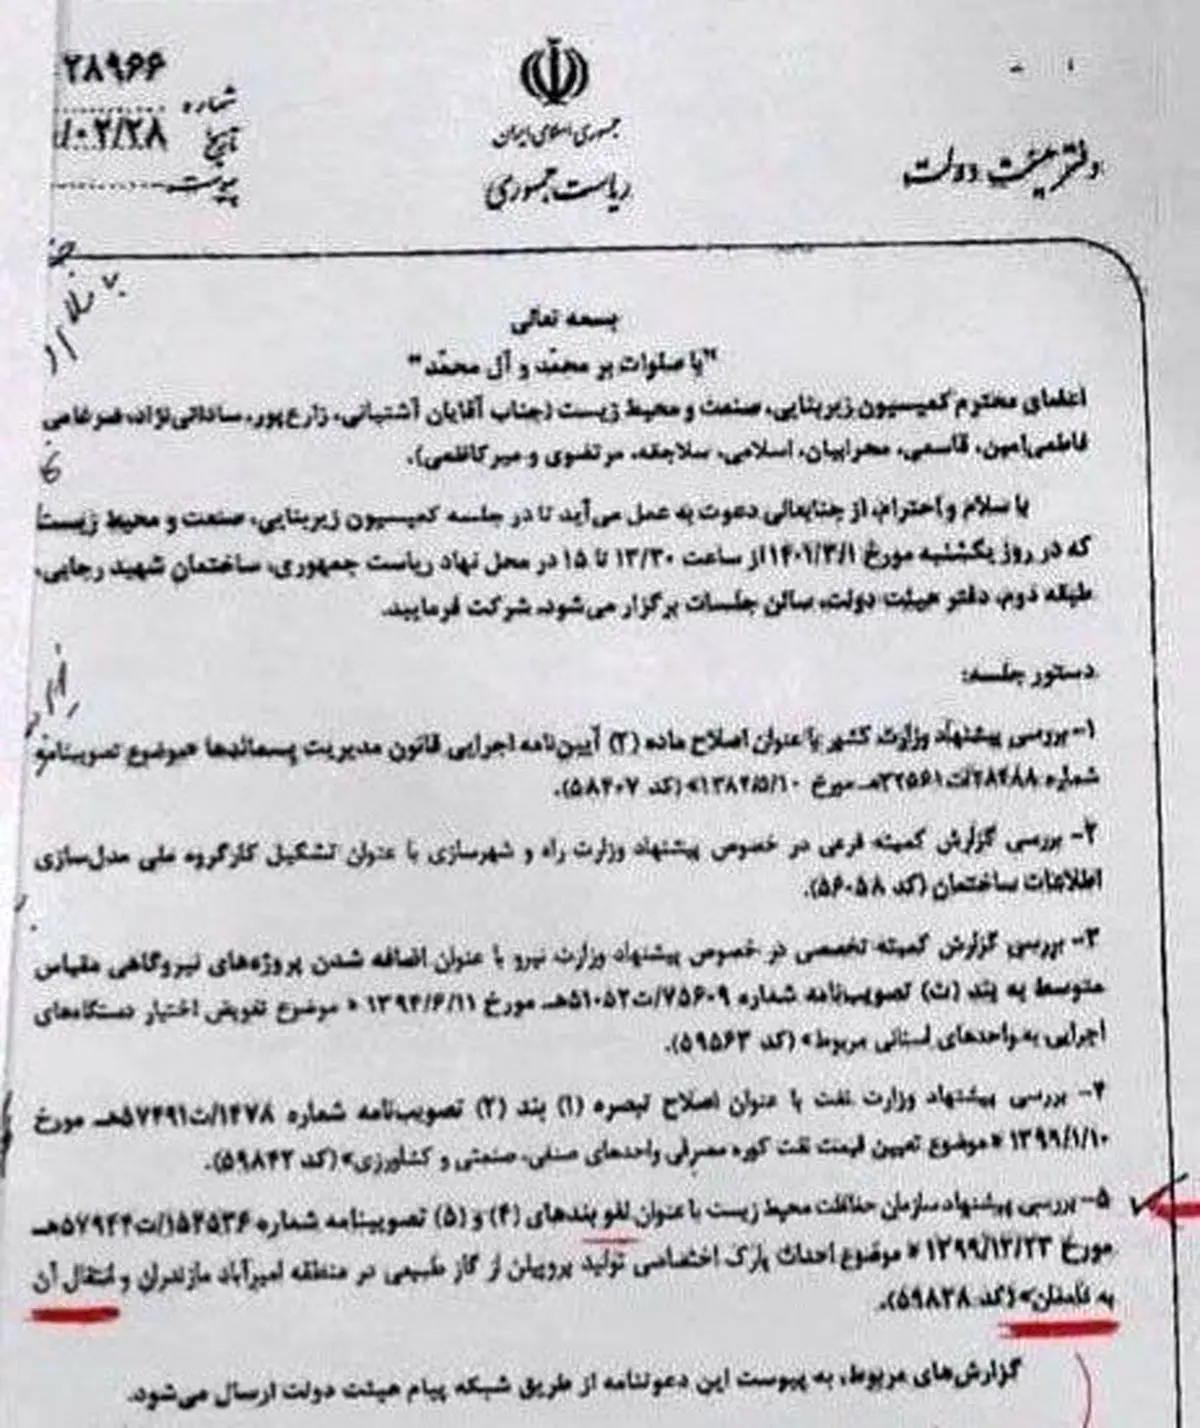 ۲۸۹۶۶
شماره
/۰۲/۲۸ تاریخ
پیوست
جمهوری اسلامی ایران
ریاست جمهوری
دفتر هیئت دولت
بسمه تعالی
"با صلوات بر محمّد و آل محمّد"
اعضای محترم کمیسیون زیربنایی، صنعت و محیط زیست (جناب آقایان آشتیانی، زارع‌پور، ساداتی‌نژاد، ضرغامی
فاطمی‌امین، قاسمی، محرابیان، اسلامی، سلاجقه، مرتضوی و میرکاظمی).
با سلام و احترام، از جنابعالی دعوت به عمل می‌آید تا در جلسه کمیسیون زیربنایی، صنعت و محیط زیست
که در روز یکشنبه مورخ ۱۴۰۱/۳/۱ از ساعت ۱۳/۳۰ تا ۱۵ در محل نهاد ریاست جمهوری، ساختمان شهید رجایی،
طبقه دوم، دفتر هیئت دولت، سالن جلسات برگزار می‌شود، شرکت فرمایید.
دستور جلسه:
۱- بررسی پیشنهاد وزارت کشور با عنوان اصلاح ماده (۲) آیین‌نامه اجرایی قانون مدیریت پسماندها «موضوع تصویبنامه
شماره ۲۸۴۸۸/ت۳۲۵۶۱هـ مورخ ۱۳۸۴/۵/۱۰» (کد ۵۸۴۰۷).
۲- بررسی گزارش کمیته فرعی در خصوص پیشنهاد وزارت راه و شهرسازی با عنوان تشکیل کارگروه ملی مدل‌سازی
اطلاعات ساختمان (کد ۵۶۰۵۸).
۳- بررسی گزارش کمیته تخصصی در خصوص پیشنهاد وزارت نیرو با عنوان اضافه شدن پروژه‌های نیروگاهی مقیاس
متوسط به بند (ث) تصویب‌نامه شماره ۷۵۶۰۹/ت۵۱۰۵۲هـ مورخ ۱۳۹۴/۶/۱۱ « موضوع تفویض اختیار دستگاه‌های
اجرایی به واحدهای استانی مربوط» (کد ۵۹۵۶۳).
۴- بررسی پیشنهاد وزارت نفت با عنوان اصلاح تبصره (۱) بند (۲) تصویب‌نامه شماره ۱۴۷۸/ت۵۷۴۹۱هـ مورخ
۱۳۹۹/۱/۱۰ «موضوع تعیین قیمت نفت کوره مصرفی واحدهای صنفی، صنعتی و کشاورزی» (کد ۵۹۸۴۲).
۵- بررسی پیشنهاد سازمان حفاظت محیط زیست با عنوان لغو بندهای (۴) و (۵) تصویبنامه شماره ۱۵۲۵۳۶/ت۵۷۹۴۴هـ
مورخ ۱۳۹۹/۱۲/۲۳ « موضوع احداث پارک اختصاصی تولید پروپیلن از گاز طبیعی در منطقه امیرآباد مازندران و انتقال آن
به گلستان» (کد ۵۹۸۲۸).
گزارش‌های مربوط، به پیوست این دعوتنامه از طریق شبکه پیام هیئت دولت ارسال می‌شود.